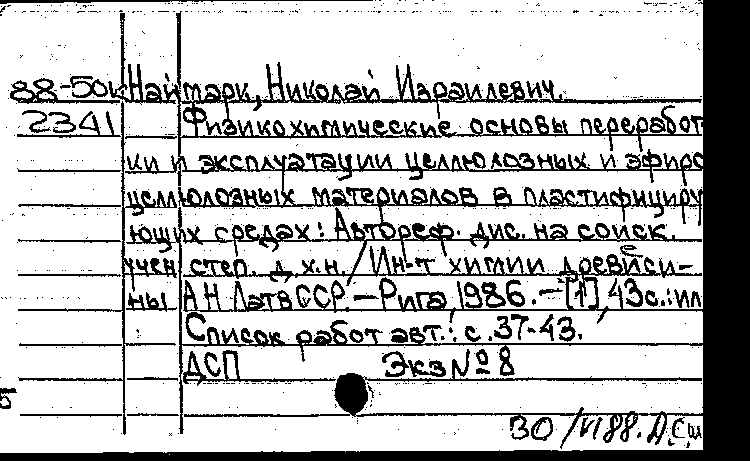 88-50к Наймарк, Николай Израилевич.
2341 Физикохимические основы переработ
ки и эксплуатации целлюлозных и эфиро
целлюлозных материалов в пластифициру
ющих средах: Автореф. дис. на соиск.
учен степ. д.х.н. / Ин-т химии древеси-
ны АН ЛатвССР. – Рига, 1986. – [1], 43 с.: ил
Список работ авт.: с. 37-43.
ДСП Экз № 8
30/VI 88.